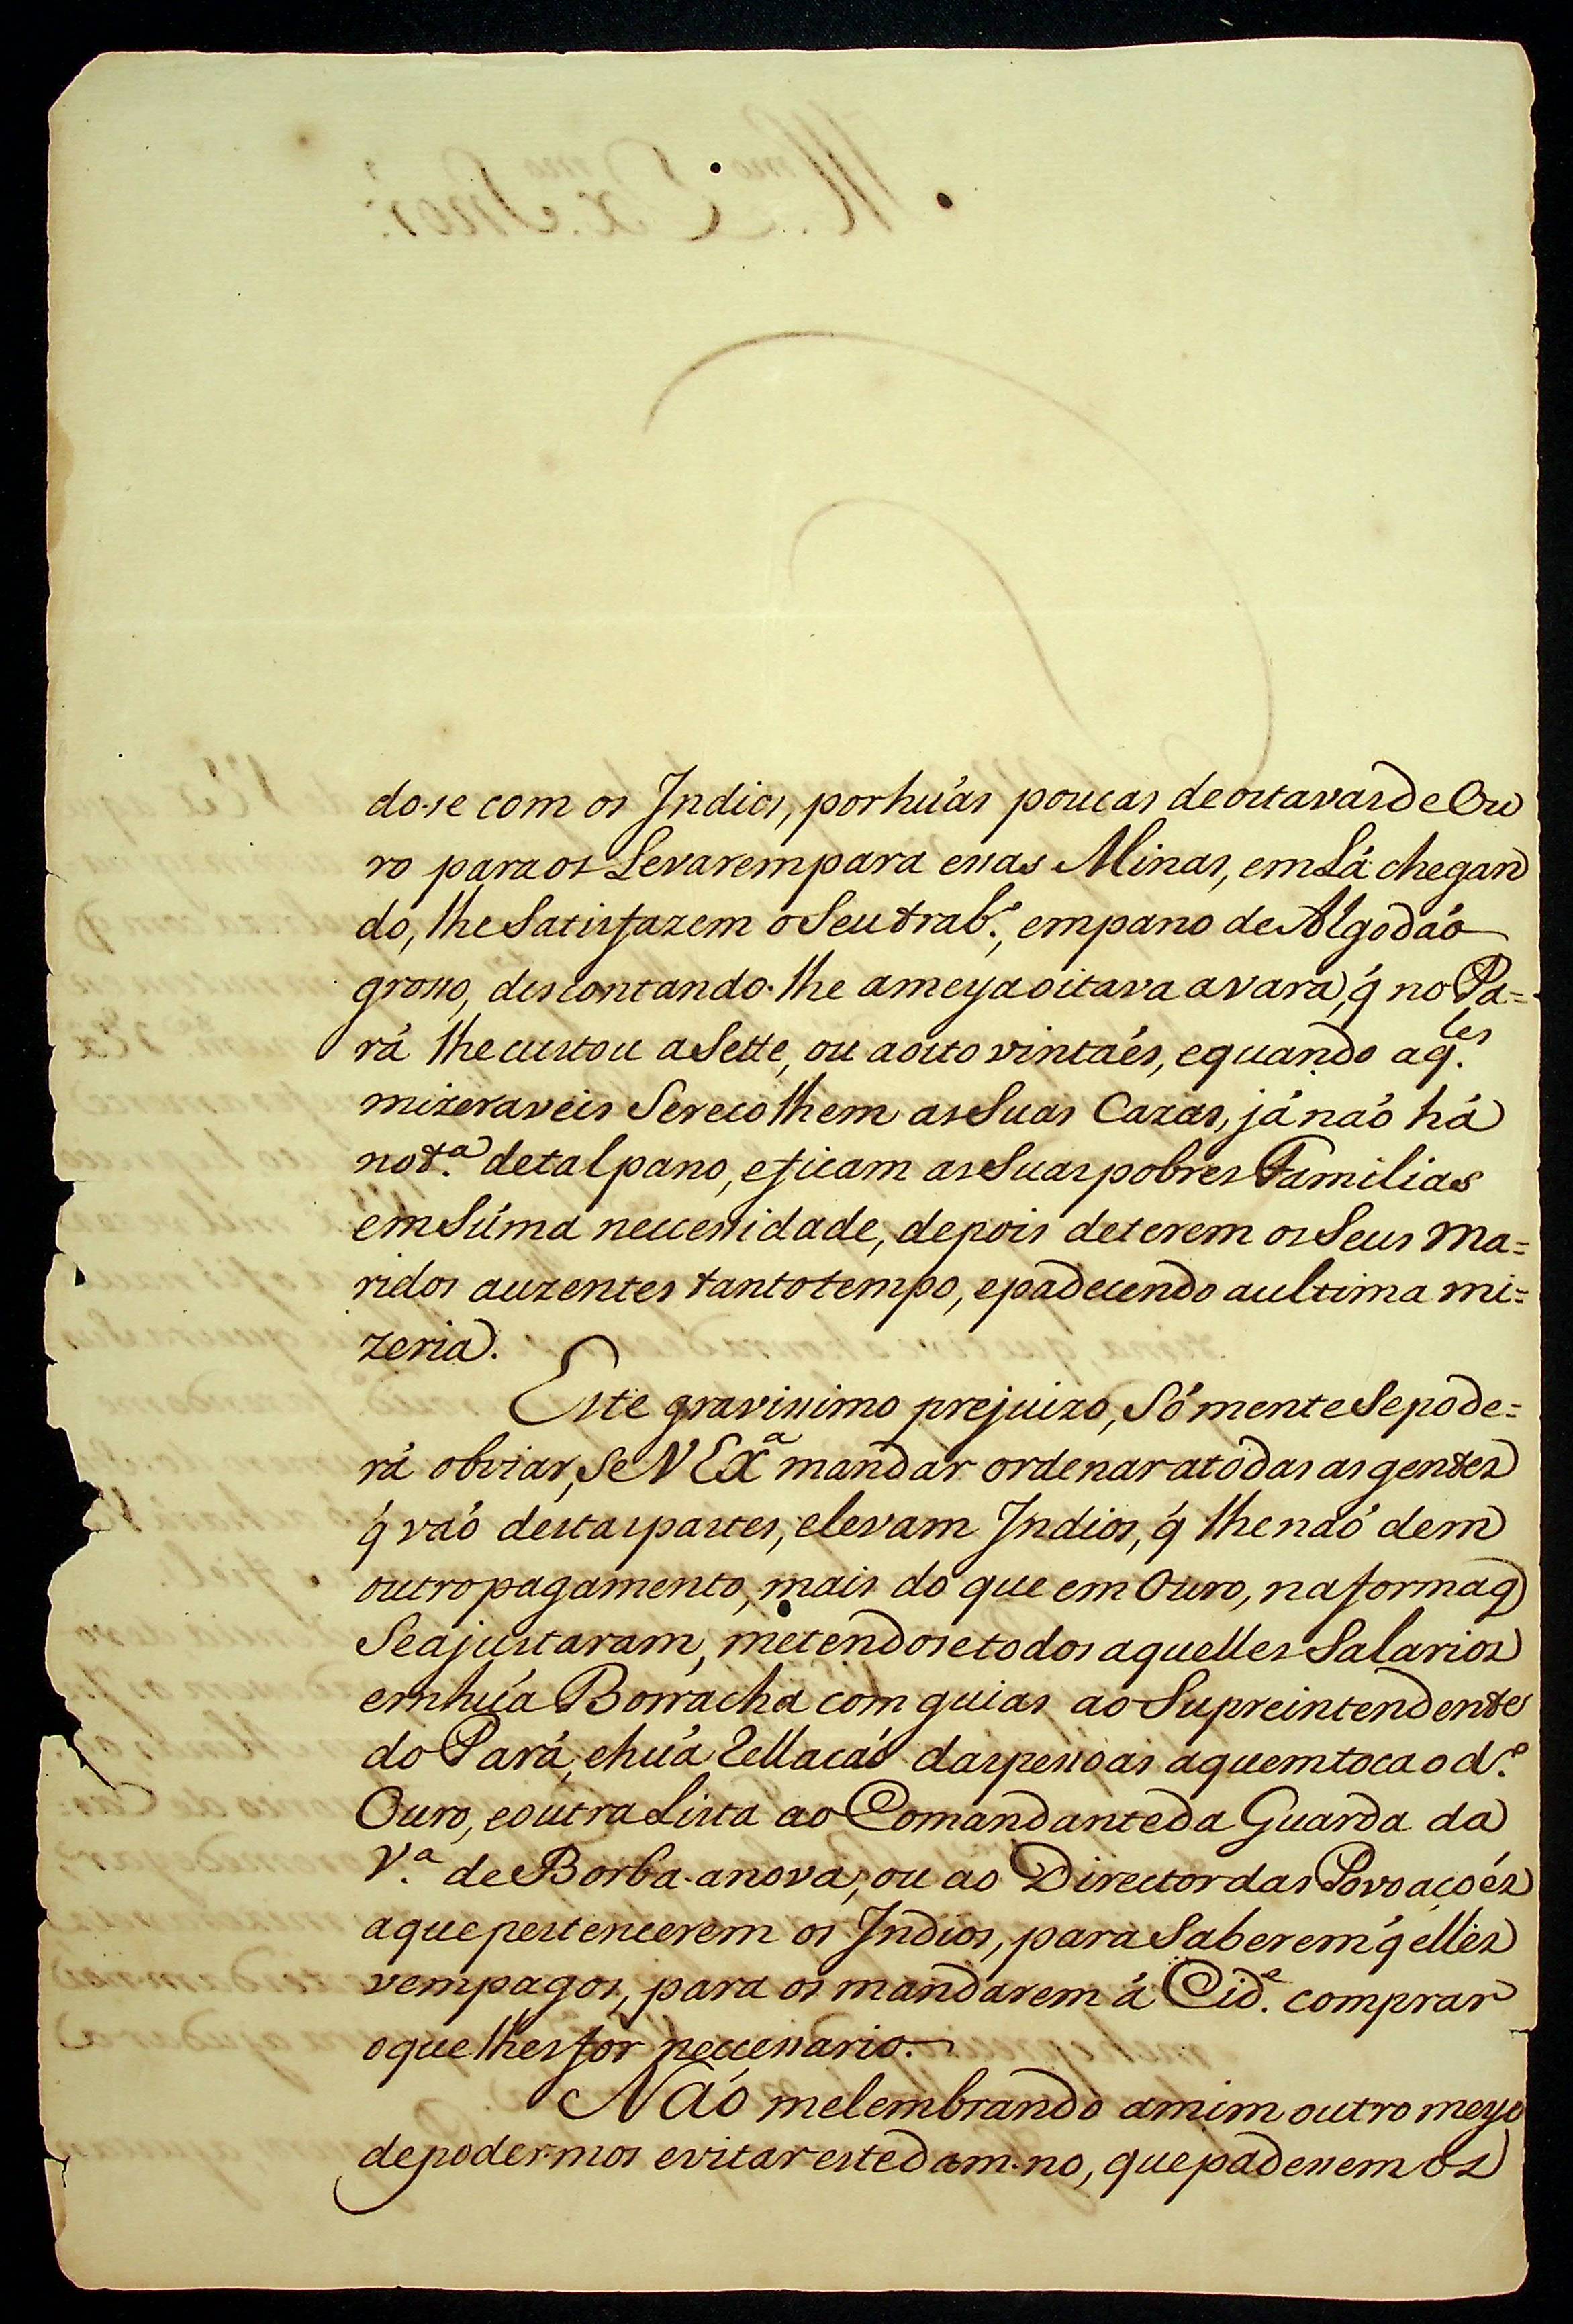 do-se com os Indios, por huás poucas de outavas de Ou
ro para os Levarem para essas Minas, em Lá chegan
do, lhe Satisfazem o Seu trab.º, em pano de Algodaó
grosso, descontando-lhe a meya oitava a vara, q́ no Pa=
rá lhe custou a Sette, ou a outo vintaés, e quando aq.les
mizeraveis Se recolhem as Suas Cazas, já naó há
not.ª de tal pano, e ficam as Suas pobres Familias
em Súma necessidade, depois de terem os Seus Ma=
ridos auzentes tanto tempo, e padecendo a ultima mi=
zeria.
Este gravissimo prejuizo, Só mente Se pode=
rá obviar, Se V Exª mandar ordenar a todas as gentes
q́ vaó destas partes, e levam Indios, q́ lhe naó dem
outro pagamento, mais do que em Ouro, na forma q
Se ajustaram, metendose todos aquelles Salarios
em húa Borracha com guias ao Supreintendente
do Pará, e húa Rellacaó das pessoas a quem toca o d.º
Ouro, e outra Lista ao Comandante da Guarda da
V.ª de Borba a nova, ou ao Director das Povoaçoés
a que pertencerem os Indios, para Saberem q́ elles
vem pagos, para os mandarem á Cid.e comprar
o que lhes fór necessario.
Naó me lembrando a mim outro meyo
de podermos evitar este dam-no, que padessem os